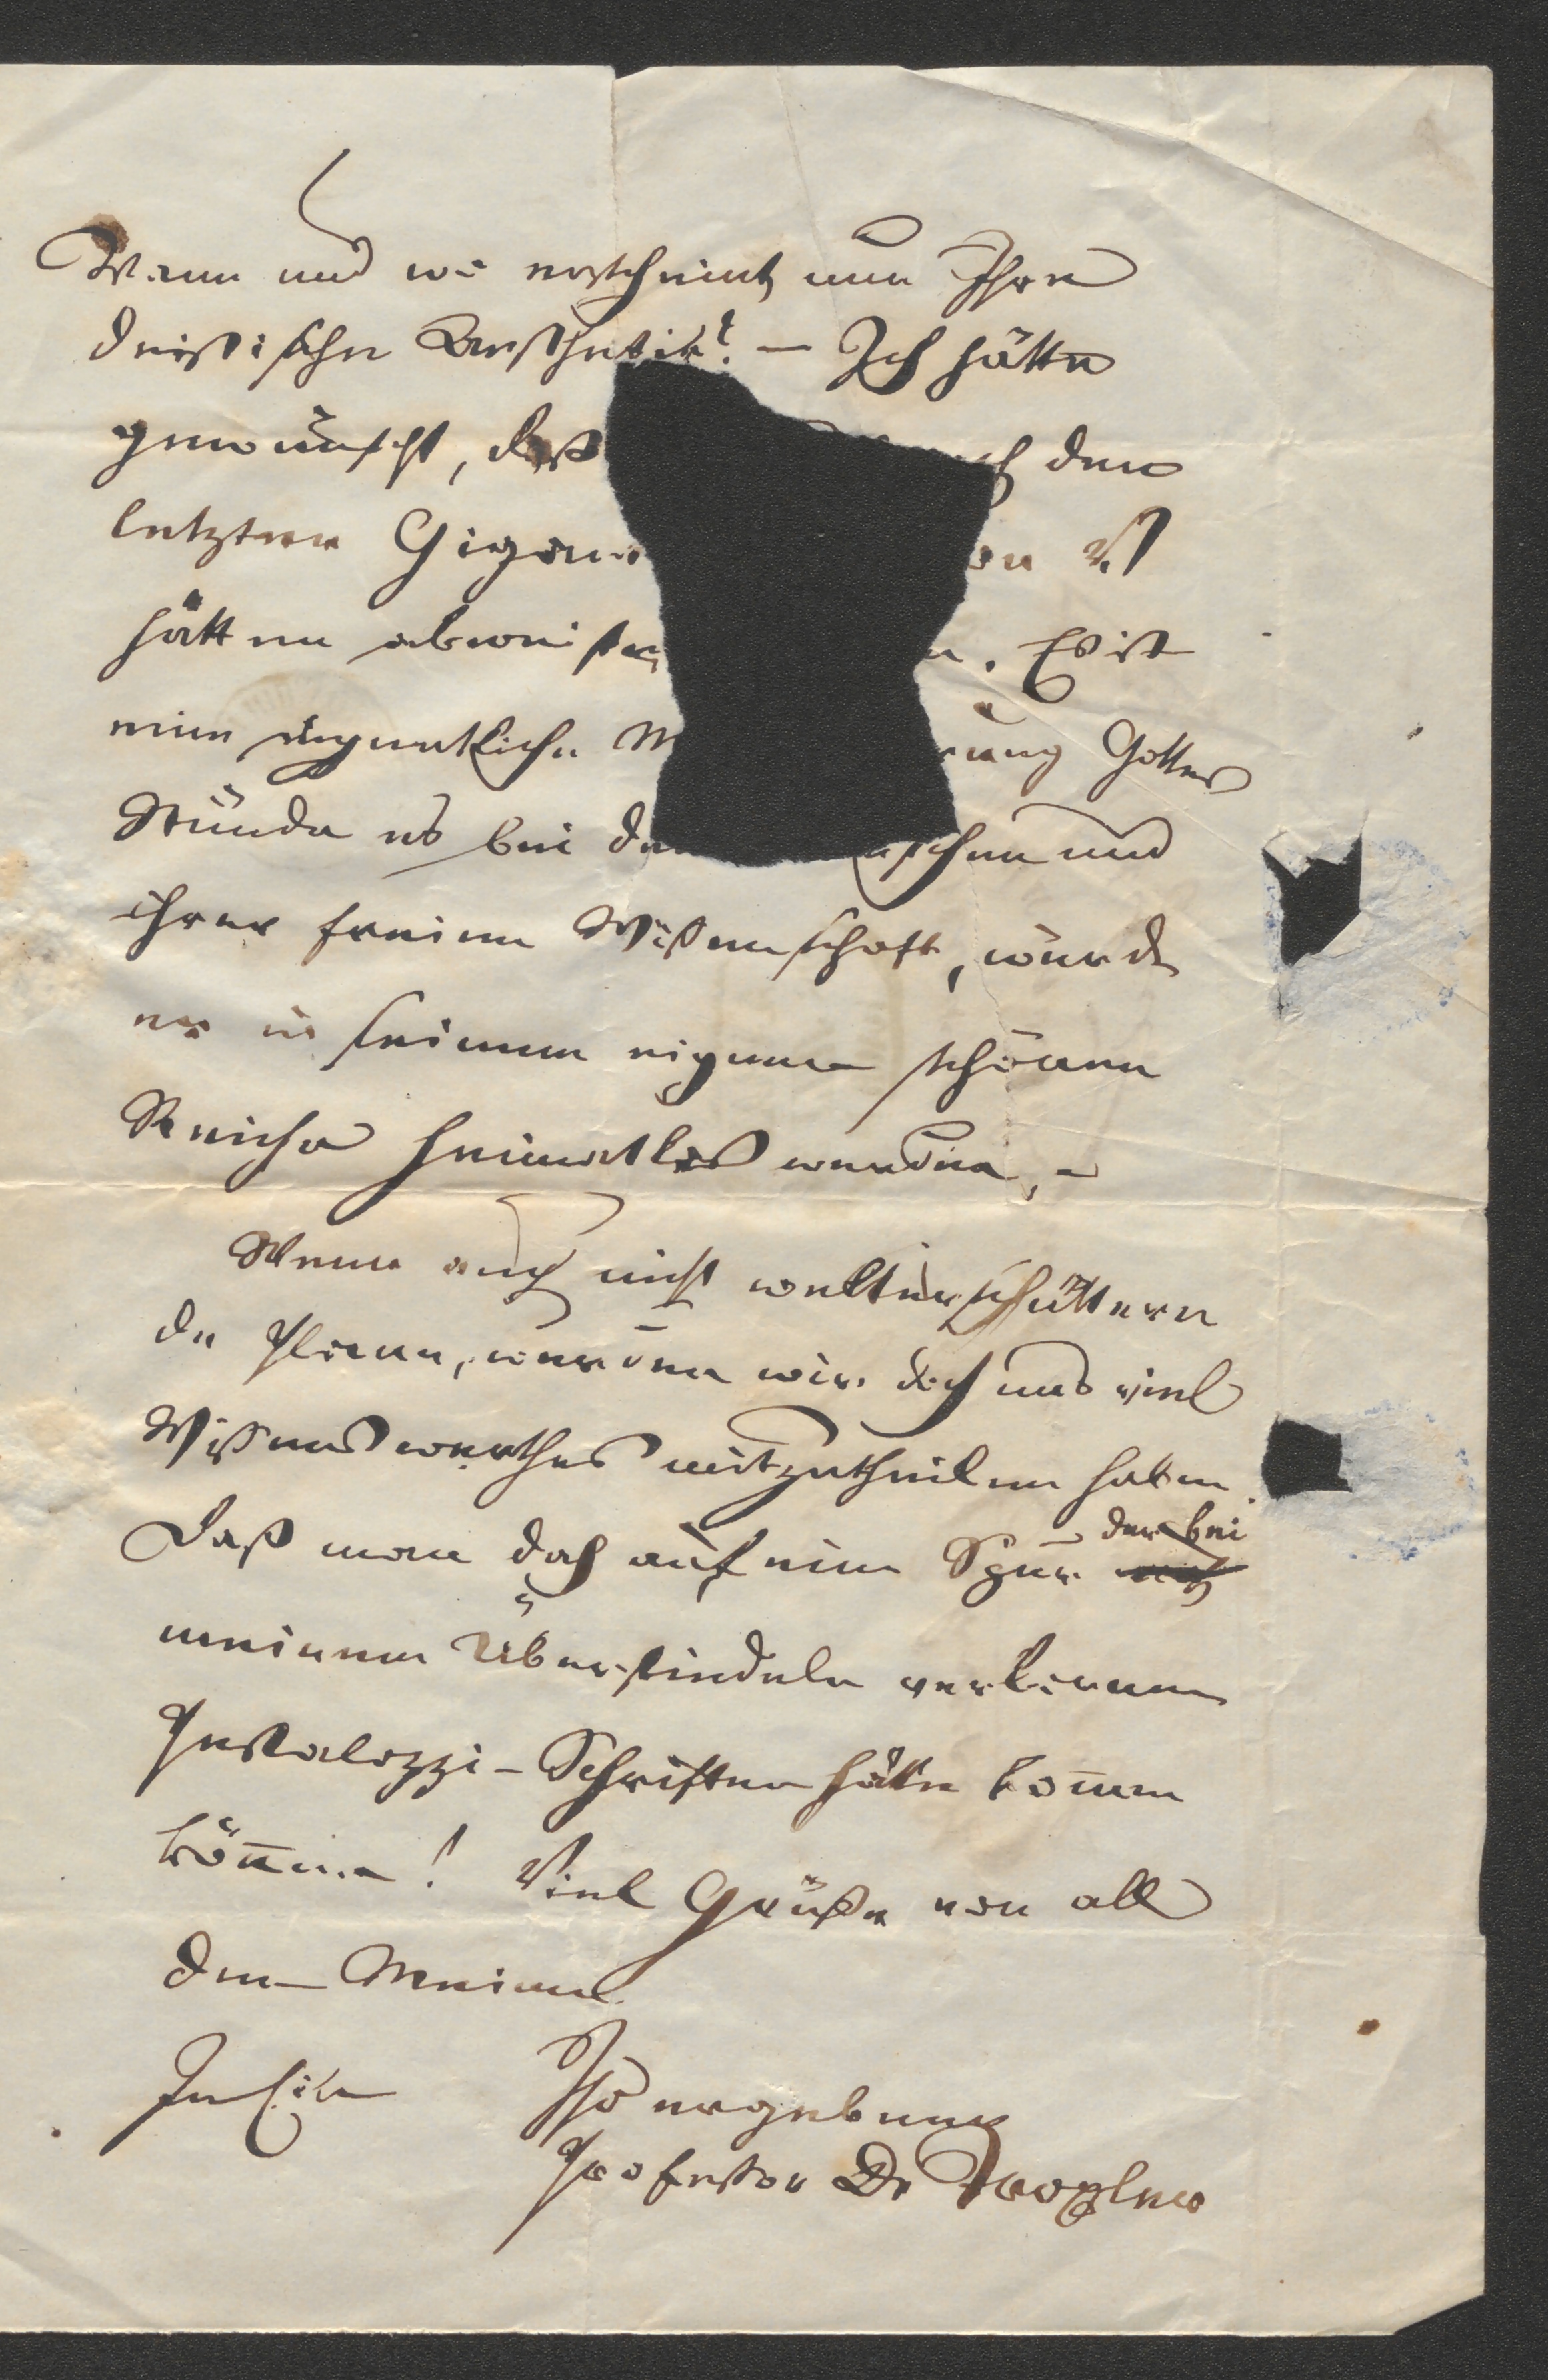 Wann und wo erscheint nun Ihre
deistische Aesthetik? — Ich hätte
gewünscht, daß ch dem
letzteren Gigan on V.
hätten abweisen n. Es ist
mein eigentliche M rung Gottes
Stünde es bei de schen und
ihrer freien Wißenschaft, würde
er in seinem eigenen schönen
Reiche heimatlos werden, –
Wenn auch nicht welterschüttern
de Plane, werden wir doch uns viel
Wißenswerthes mitzutheilen haben.
Daß man doch auf eine Spur der bei
meinem Übersiedeln verlornen
Pestalozzi-Schriften hätte kom̅en
kön̅en! Viel Grüße von all
den Meinen.
In Eile Ihr ergebener
Professor Dr Troxler